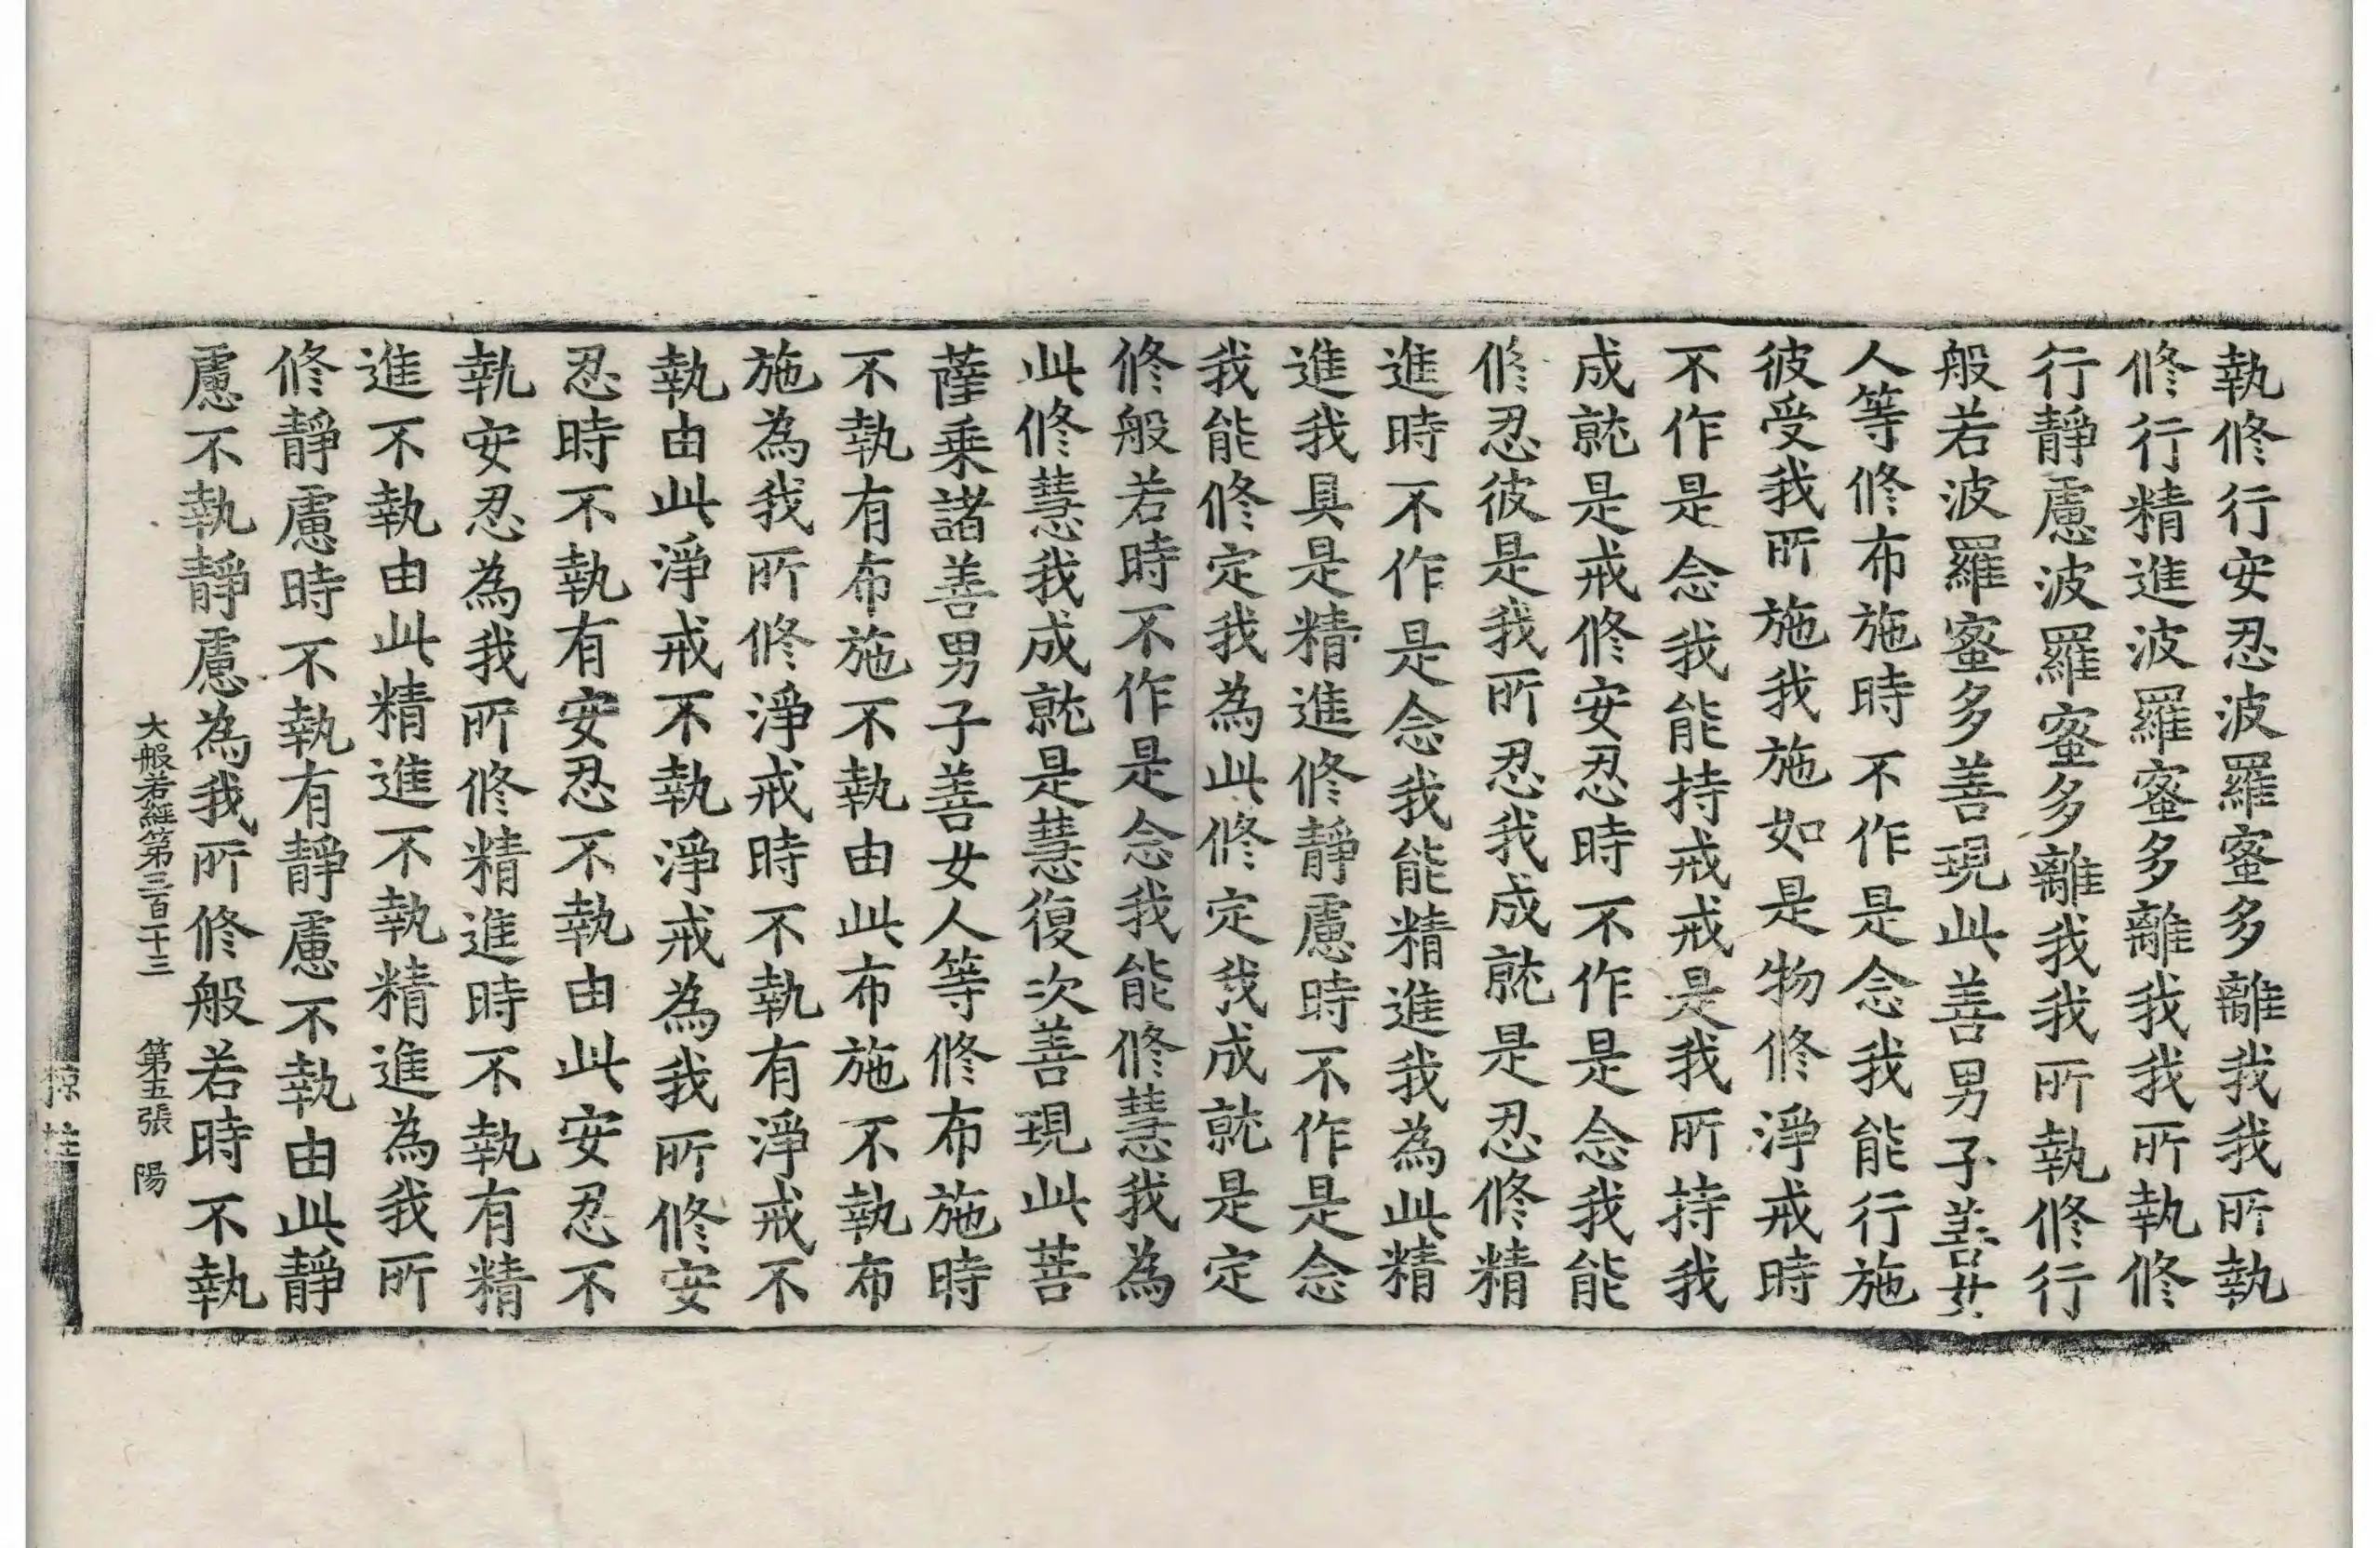 執修行安忍波羅蜜多離我我所執
修行精進波羅蜜多離我我所執修
行靜慮波羅蜜多離我我所執修行
般若波羅蜜多善現此善男子善女
人等修布施時不作是念我能行施
彼受我所施我施如是物修淨戒時
不作是念我能持戒戒是我所持我
成就是戒修安忍時不作是念我能
修忍彼是我所忍我成就是忍修精
進時不作是念我能精進我為此精
進我具是精進修靜慮時不作是念
我能修定我為此修定我成就是定
修般若時不作是念我能修慧我為
此修慧我成就是慧復次善現此菩
薩乘諸善男子善女人等修布施時
不執有布施不執由此布施不執布
施為我所修淨戒時不執有淨戒不
執由此淨戒不執淨戒為我所修安
忍時不執有安忍不執由此安忍不
執安忍為我所修精進時不執有精
進不執由此精進不執精進為我所
修靜慮時不執有靜慮不執由此靜
慮不執靜慮為我所修般若時不執
大般若經第三百十三 第五張 陽